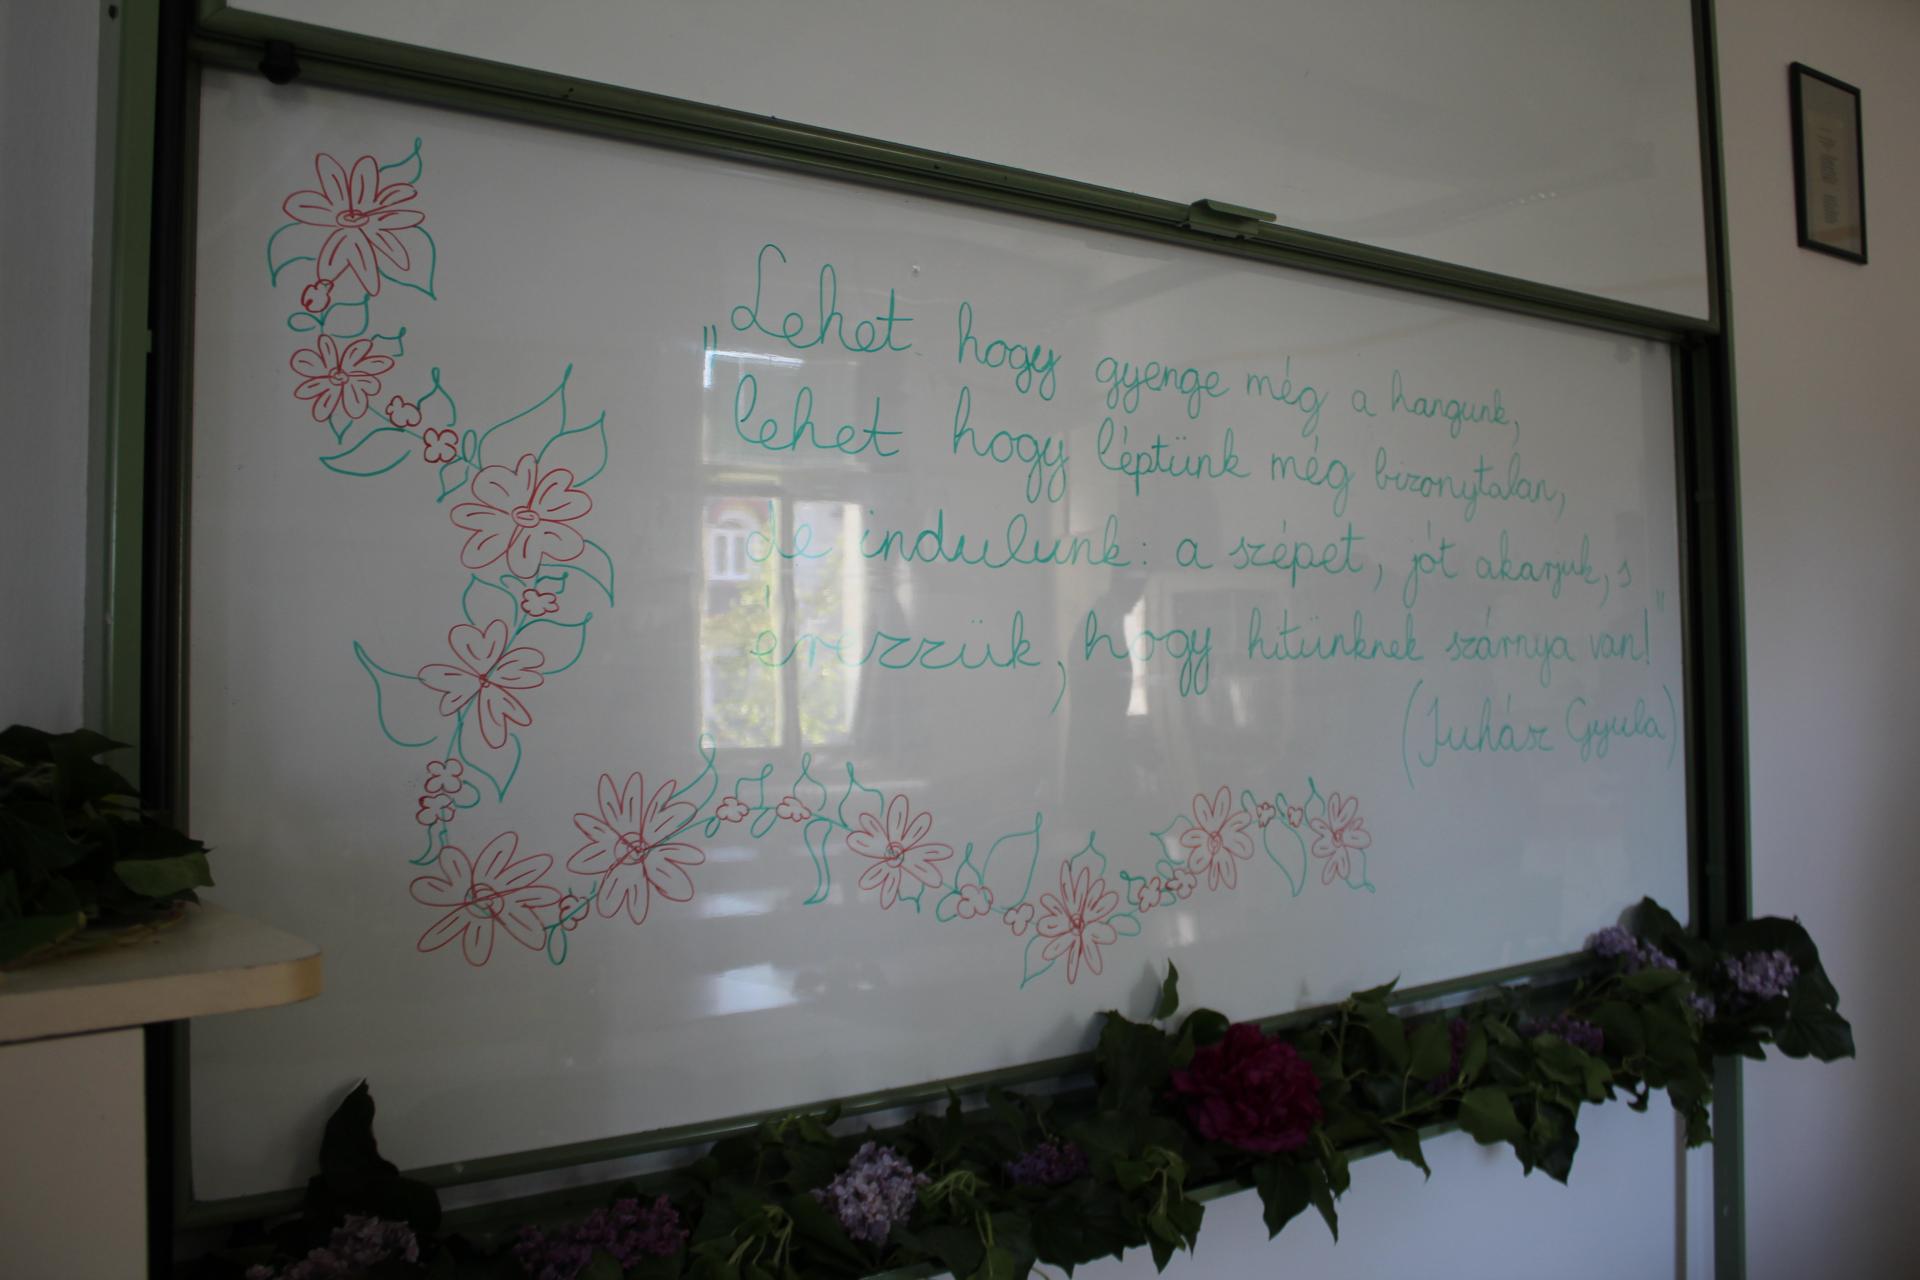 „Lehet hogy gyenge még a hangunk,
lehet hogy léptünk még bizonytalan,
de indulunk: a szépet, jót akarjuk, s
érezzük, hogy hitünknek szárnya van!”
(Juhász Gyula)